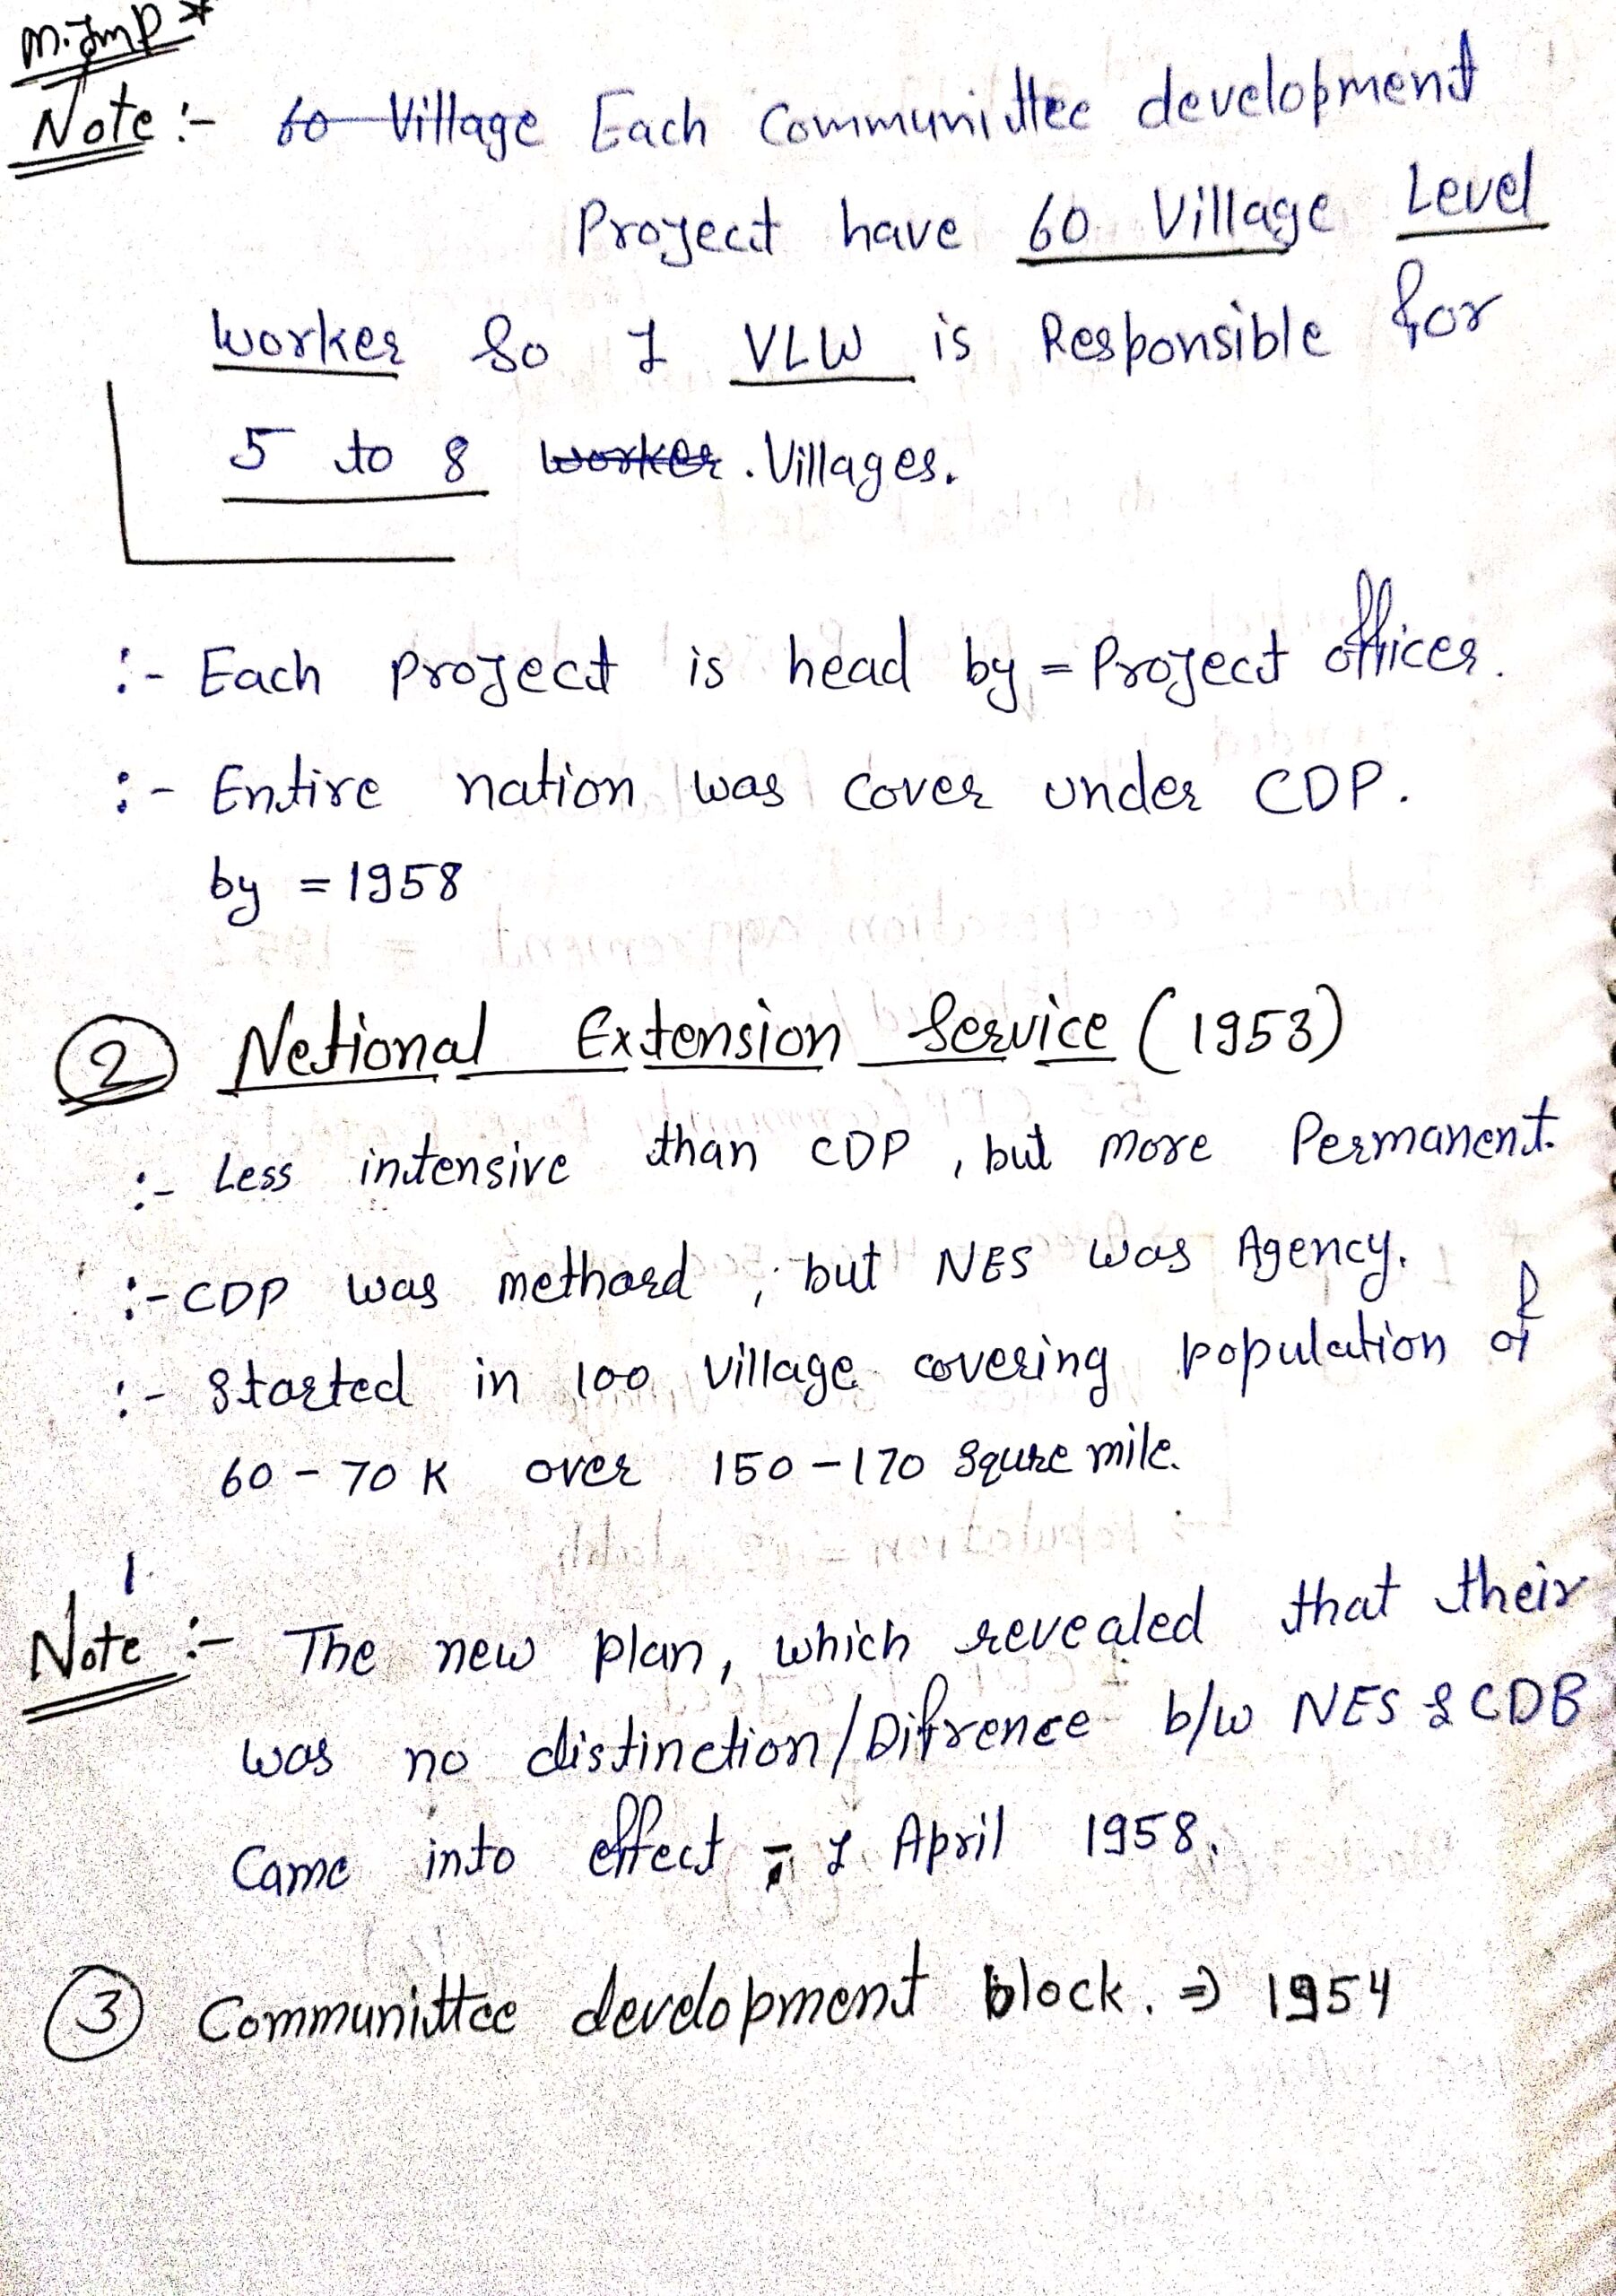 M. Imp *
Note :- 60 Village Each Communittee development
Project have 60 Village Level
worker So 1 VLW is Responsible for
5 to 8 worker. Villages.
:- Each project is head by = Project officer.
:- Entire nation was cover under CDP.
by = 1958
2 Netional Extension Service (1953)
:- Less intensive than CDP, but more Permanent.
:- CDP was methord, but NES was Agency.
:- Started in 100 village covering population of
60 - 70 K over 150 - 170 squre mile.
1.
Note :- The new plan, which revealed that their
was no distinction/Difrence b/w NES & CDB
Came into effect = 1 April 1958.
3 Communittee development block. ⇒ 1954